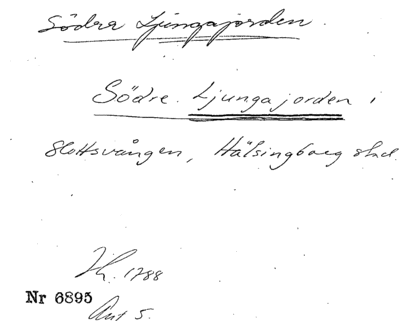 Södra Ljungajorden.
Södre. Ljungajorden i
Slottsvången, Hälsingborg stad.
Jh. 1788
Nr 6895
Akt 5.